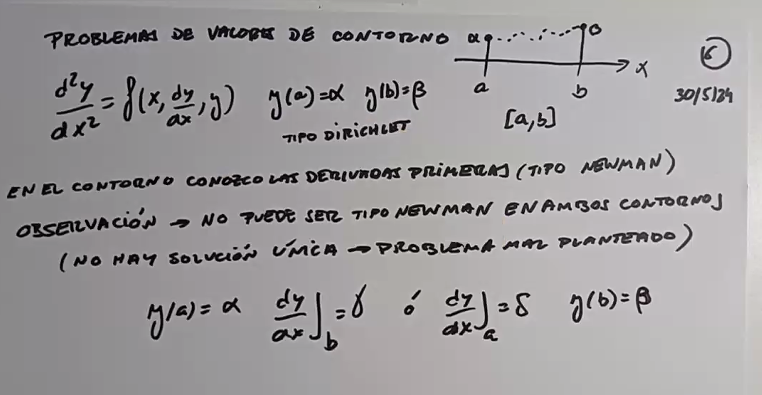 PROBLEMAS DE VALORES DE CONTORNO
α
a b x
[a,b]
30/5/24
d²y/dx² = f(x, dy/dx, y) y(a)=α y(b)=β
TIPO DIRICHLET
EN EL CONTORNO CONOZCO LAS DERIVADAS PRIMERAS (TIPO NEWMAN)
OBSERVACIÓN → NO PUEDE SER TIPO NEWMAN EN AMBOS CONTORNOS
(NO HAY SOLUCIÓN ÚNICA → PROBLEMA MAL PLANTEADO)
y(a)=α dy/dx]b = γ ó dy/dx]a = δ y(b)=β